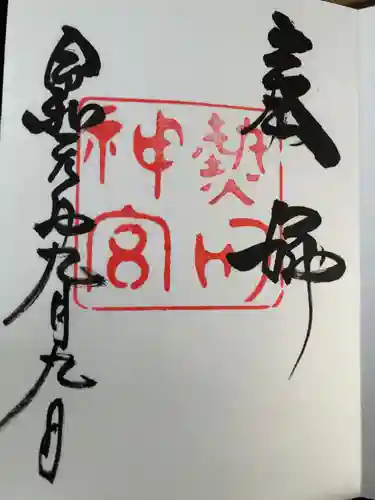 奉拝
熱田神宮
令和元年九月九日